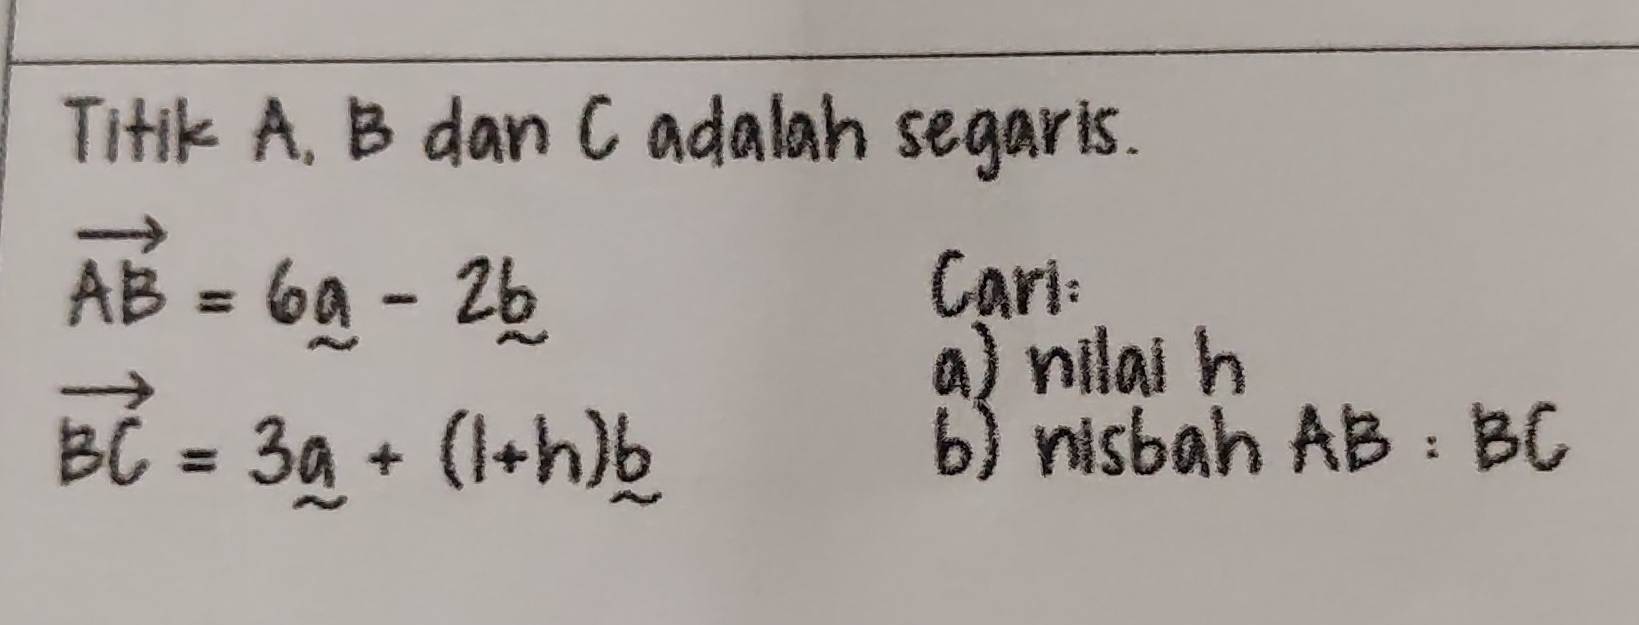 Titik A, B dan C adalah segaris.
→AB = 6a̰ - 2b̰
→BC = 3a̰ + (1+h)b̰
Cari:
a) nilai h
b) nisbah AB : BC